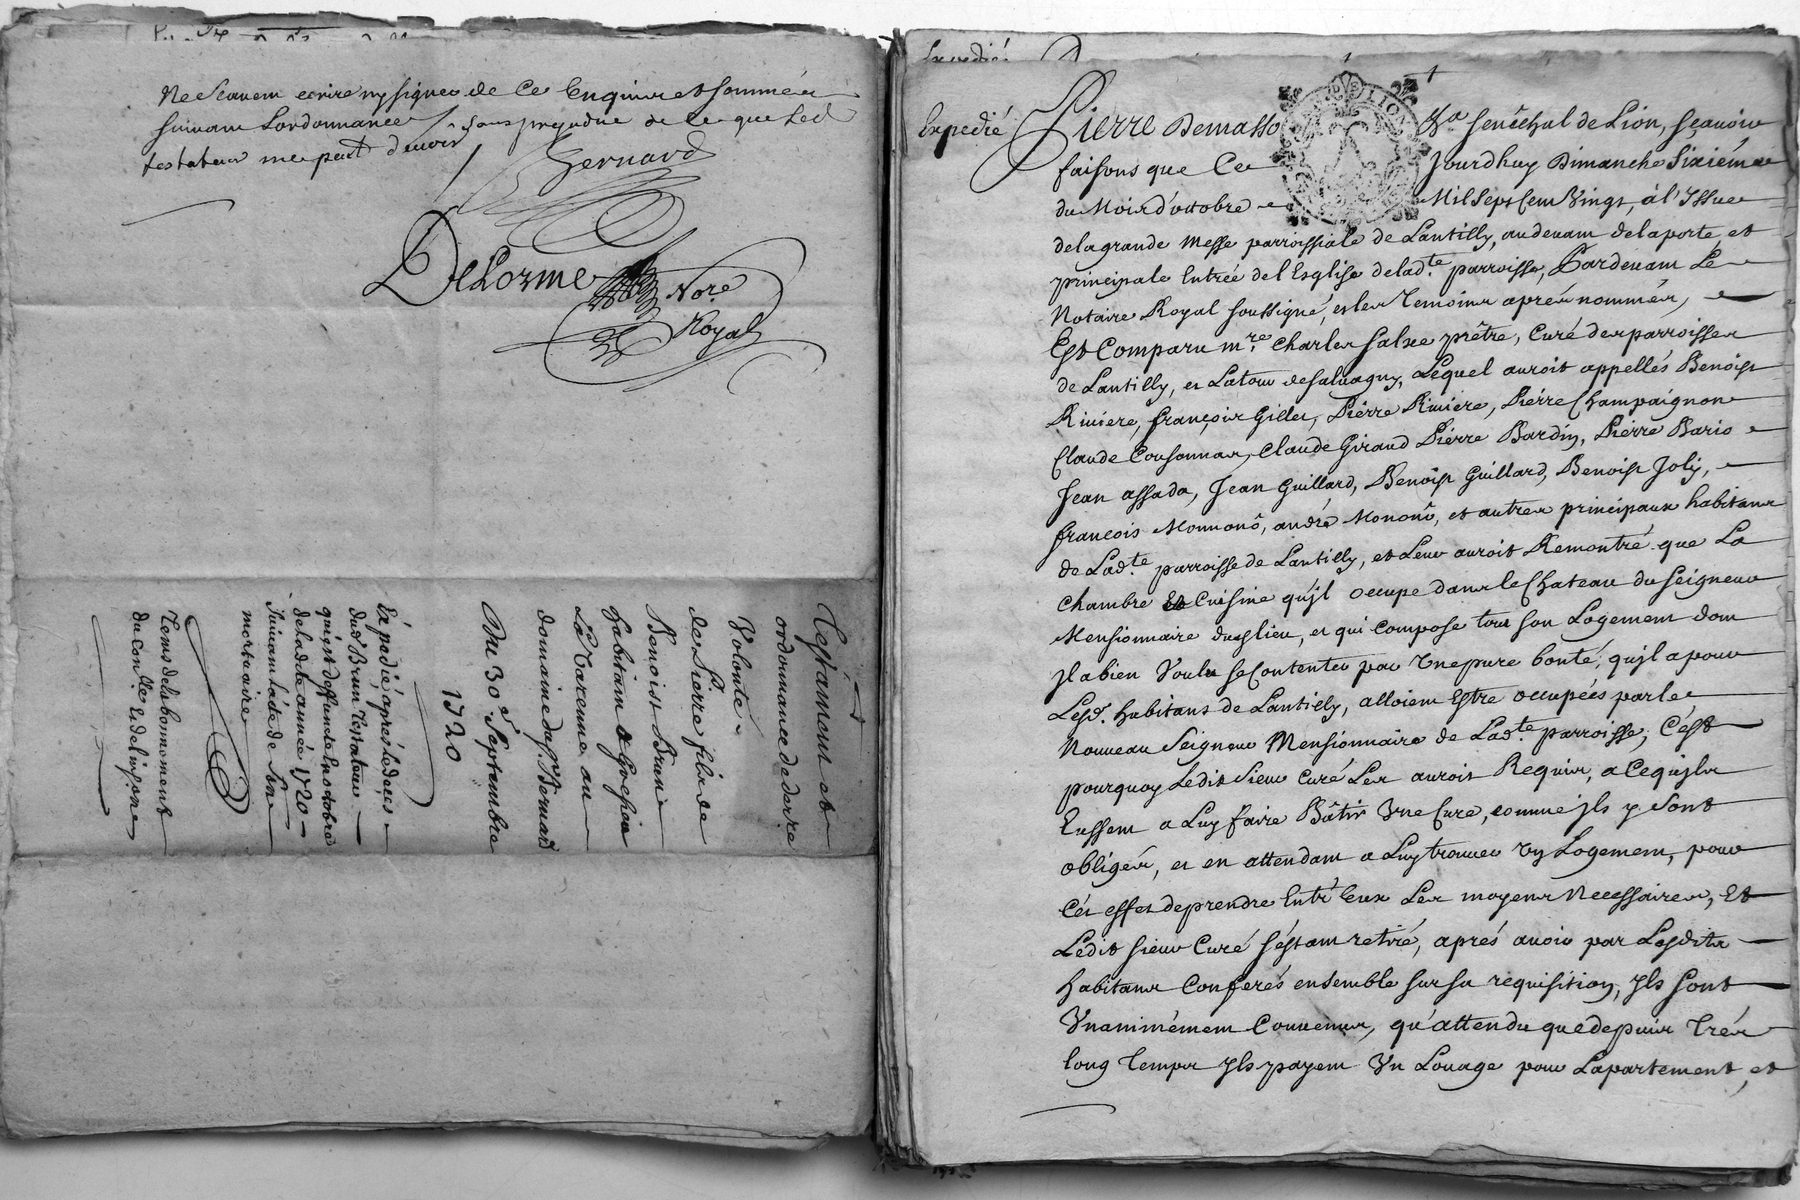 Ne Scavem ecrire ny signer de Ce Enquis et sommés
suivant Lordonnance sans prejudice de ce que Led
testateur me peut devoir
Bernard
Delorme Nore
Royal
Testament et
ordonnance de derre
Volonté
de Pierre fils de
Benoist Brun
habitant a
La Varenne au
domaine du Sr Bernard
Du 30e Septembre
1720
Expedié aprés le deces
dud Brun Testateur
qui est deffunct en octobre
de ladite année 1720
suivant lacte de son
mortuaire
Tems de labonnement
du conlle
Expedié
Pierre Demasso Sgr Senéchal de Lion, sçavoir
faisons que Ce Jourdhuy Dimanche Sixiéme
du Mois d'octobre Mil Sept Cem Vingt, à l'Issue
de la grande Messe parroissiale de Lantilly, au devam de la porte et
principale Entrée del Esglise de lad.te parroisse, Pardevam Le
Notaire Royal soussigné, et les Temoins aprés nommés,
Est Comparu m.re Charles Salxe prêtre, Curé des parroisses
de Lantilly, et Latour de Salvagny, Lequel auroit appellés Benoist
Riviere, françois Gillet, Piérre Riviere, Piérre Champaignon
Claude Cousonnas, Claude Giraud Piérre Bardin, Piérre Bario
Jean assada, Jean Guillard, Benoist Guillard, Benoist Joly,
françois Monnonô, andré Mononô, et autres principaux habitans
de Lad.te parroisse de Lantilly, et Leur auroit Remontré que La
Chambre Et Cuisine qu'jl occupe dans le Chateau du Seigneur
Mensionnaire dud lieu, et qui compose tout son Logement dom
jl a bien Voulu se Contenter par Une pure bonté, qu'jl a pour
Lesd. habitans de Lantilly, alloiem Estre occupées par le
Nouveau Seigneur Mensionnaire de Lad.te parroisse, C'est
pourquoy Ledit Sieur Curé Les auroit Requis, a Ce qu'jls
Eussem a Luy faire Bâtir Une Cure, comme jls y sont
obligés, et en attendam a Luy trouver Un Logement, pour
Cét effet de prendre Entr'Eux Les moyens Necessaires, Et
Ledit Sieur Curé s'éstam retiré, aprés avoir par Lesdits
habitans Conferés ensemble sur sa requisition, jls sont
Unanimémem Convenus, qu'attendu que depuis Trés
long Temps jls payem Un Louage pour Lapartement, et